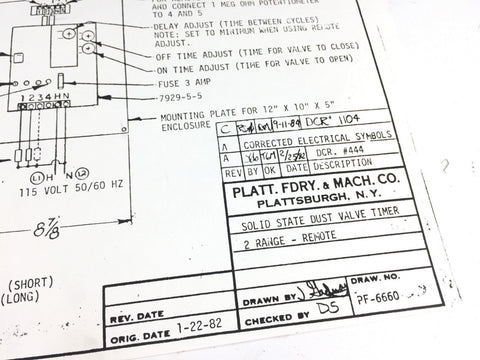 AND CONNECT 1 MEG OHM POTENTIOMETER
TO 4 AND 5
DELAY ADJUST (TIME BETWEEN CYCLES)
NOTE: SET TO MINIMUM WHEN USING REMOTE
ADJUST.
OFF TIME ADJUST (TIME FOR VALVE TO CLOSE)
ON TIME ADJUST (TIME FOR VALVE TO OPEN)
FUSE 3 AMP
7929-5-5
1 2 3 4 H N
MOUNTING PLATE FOR 12" X 10" X 5"
ENCLOSURE
L1 H N L2
115 VOLT 50/60 HZ
8 7/8
(SHORT)
(LONG)
C 9-11-84 DCR# 1104
A CORRECTED ELECTRICAL SYMBOLS
A 2/25/82 DCR. #444
REV BY OK DATE DESCRIPTION
PLATT. FDRY. & MACH. CO.
PLATTSBURGH, N.Y.
SOLID STATE DUST VALVE TIMER
2 RANGE - REMOTE
REV. DATE
ORIG. DATE 1-22-82
DRAWN BY
CHECKED BY DS
DRAW. NO.
PF-6660